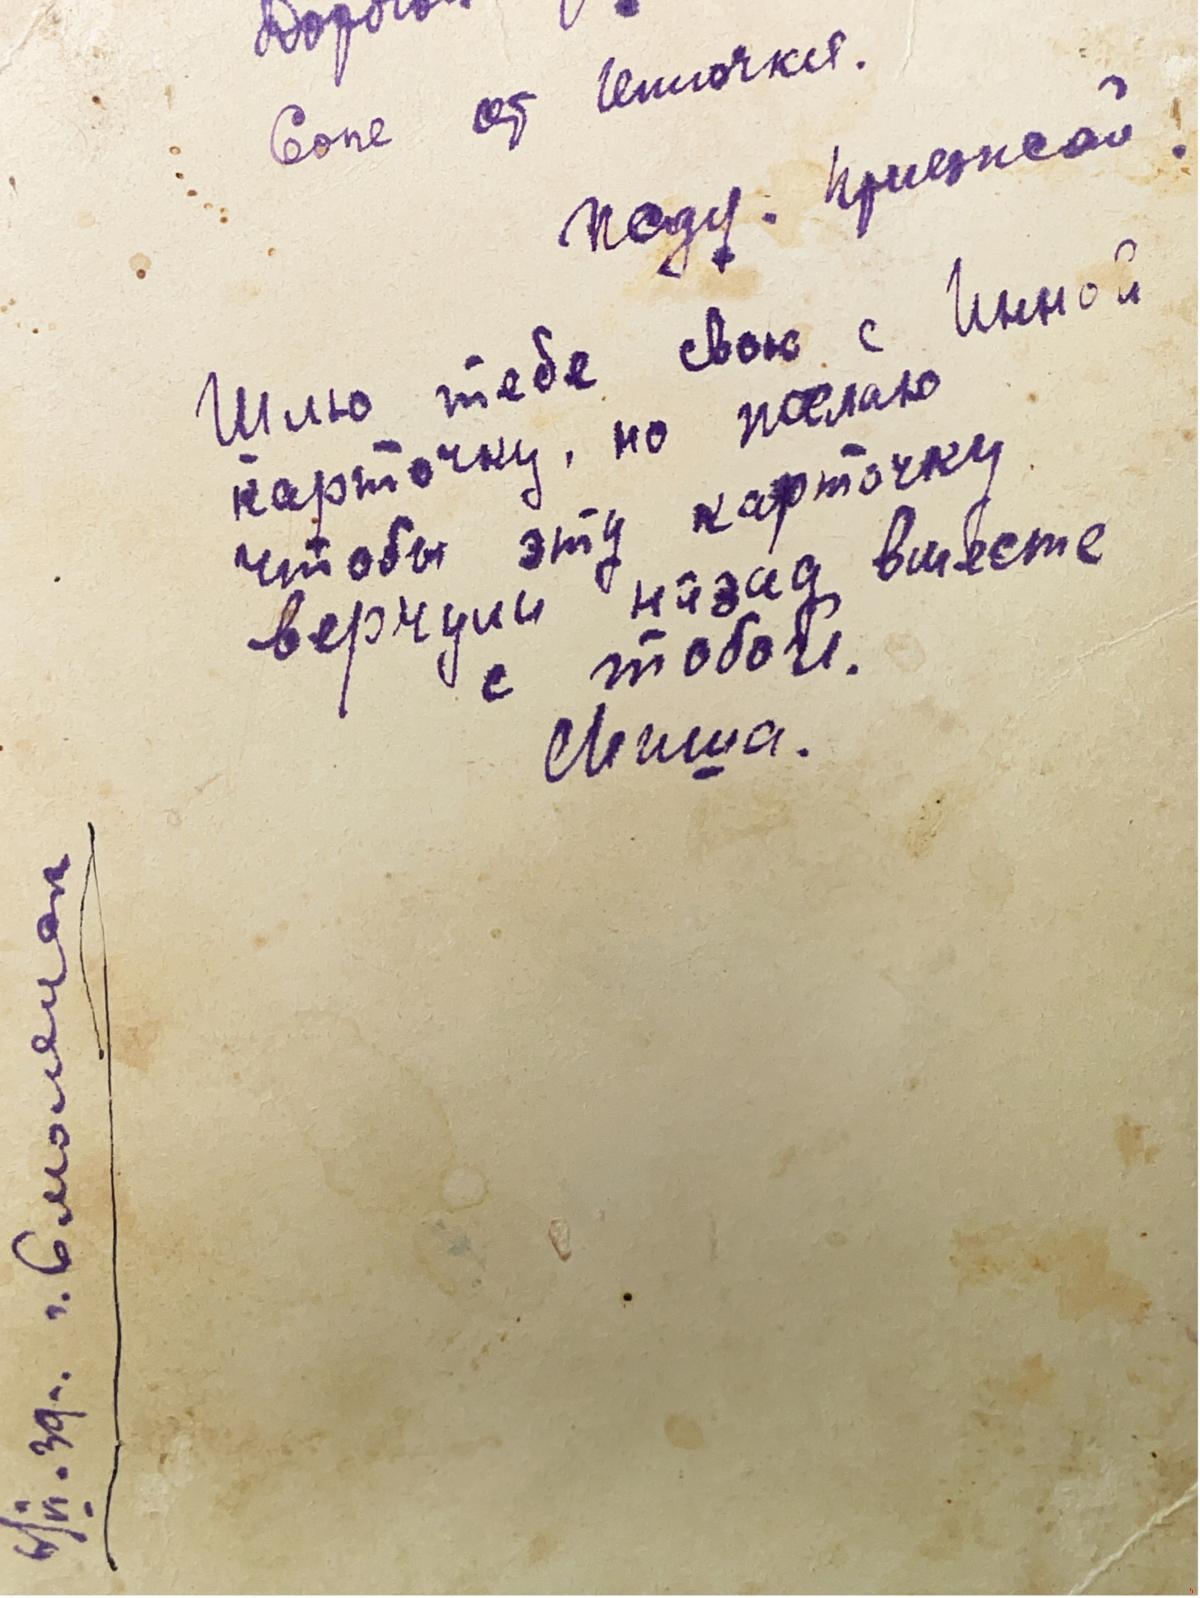 Дорогой
Соне от Инночки.
Жду. Приезжай!
Шлю тебе свою с Инной
карточку, но желаю
чтобы эту карточку
вернули назад вместе
с тобой.
Миша.
39 г. г. Смоленск